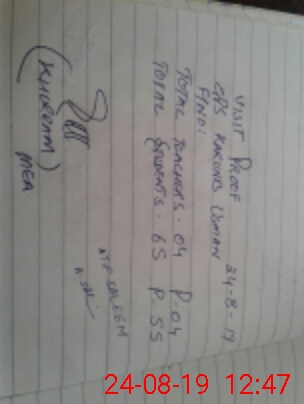 VISIT PROOF
24-8-19
GPS KARIONES USMAN
FIND:
TOTAL TEACHERS - 04 P-04
TOTAL STUDENTS - 65 P 55
(KHURRAM)
MEA
ATIF SALEEM
24-08-19 12:47